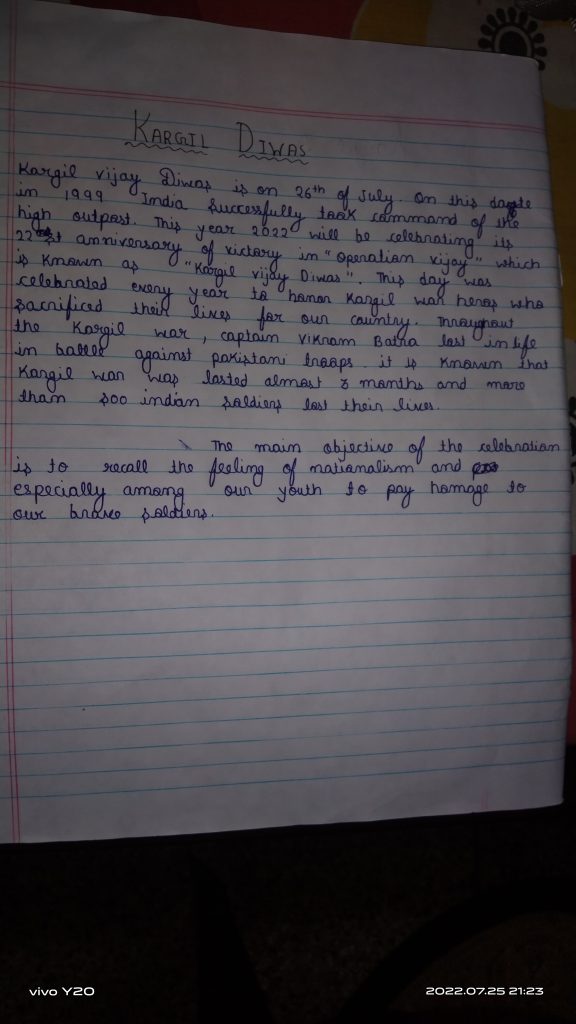 KARGIL DIWAS
Kargil vijay Diwas is on 26th of July. On this date
in 1999 India successfully took command of the
high outpost. This year 2022 will be celebrating its
22st anniversary of victory in "operation vijay" which
is known as "Kargil vijay Diwas". This day was
celebrated every year to honor Kargil war heros who
sacrificed their lives for our country. Throughout
the Kargil war, captain Vikram Batra lost in life
in battle against pakistani troops. it is known that
Kargil war was lasted almost 3 months and more
than 500 indian soldiers lost their lives.
The main objective of the celebration
is to recall the feeling of nationalism and
especially among our youth to pay homage to
our brave soldiers.
vivo Y20
2022.07.25 21:23